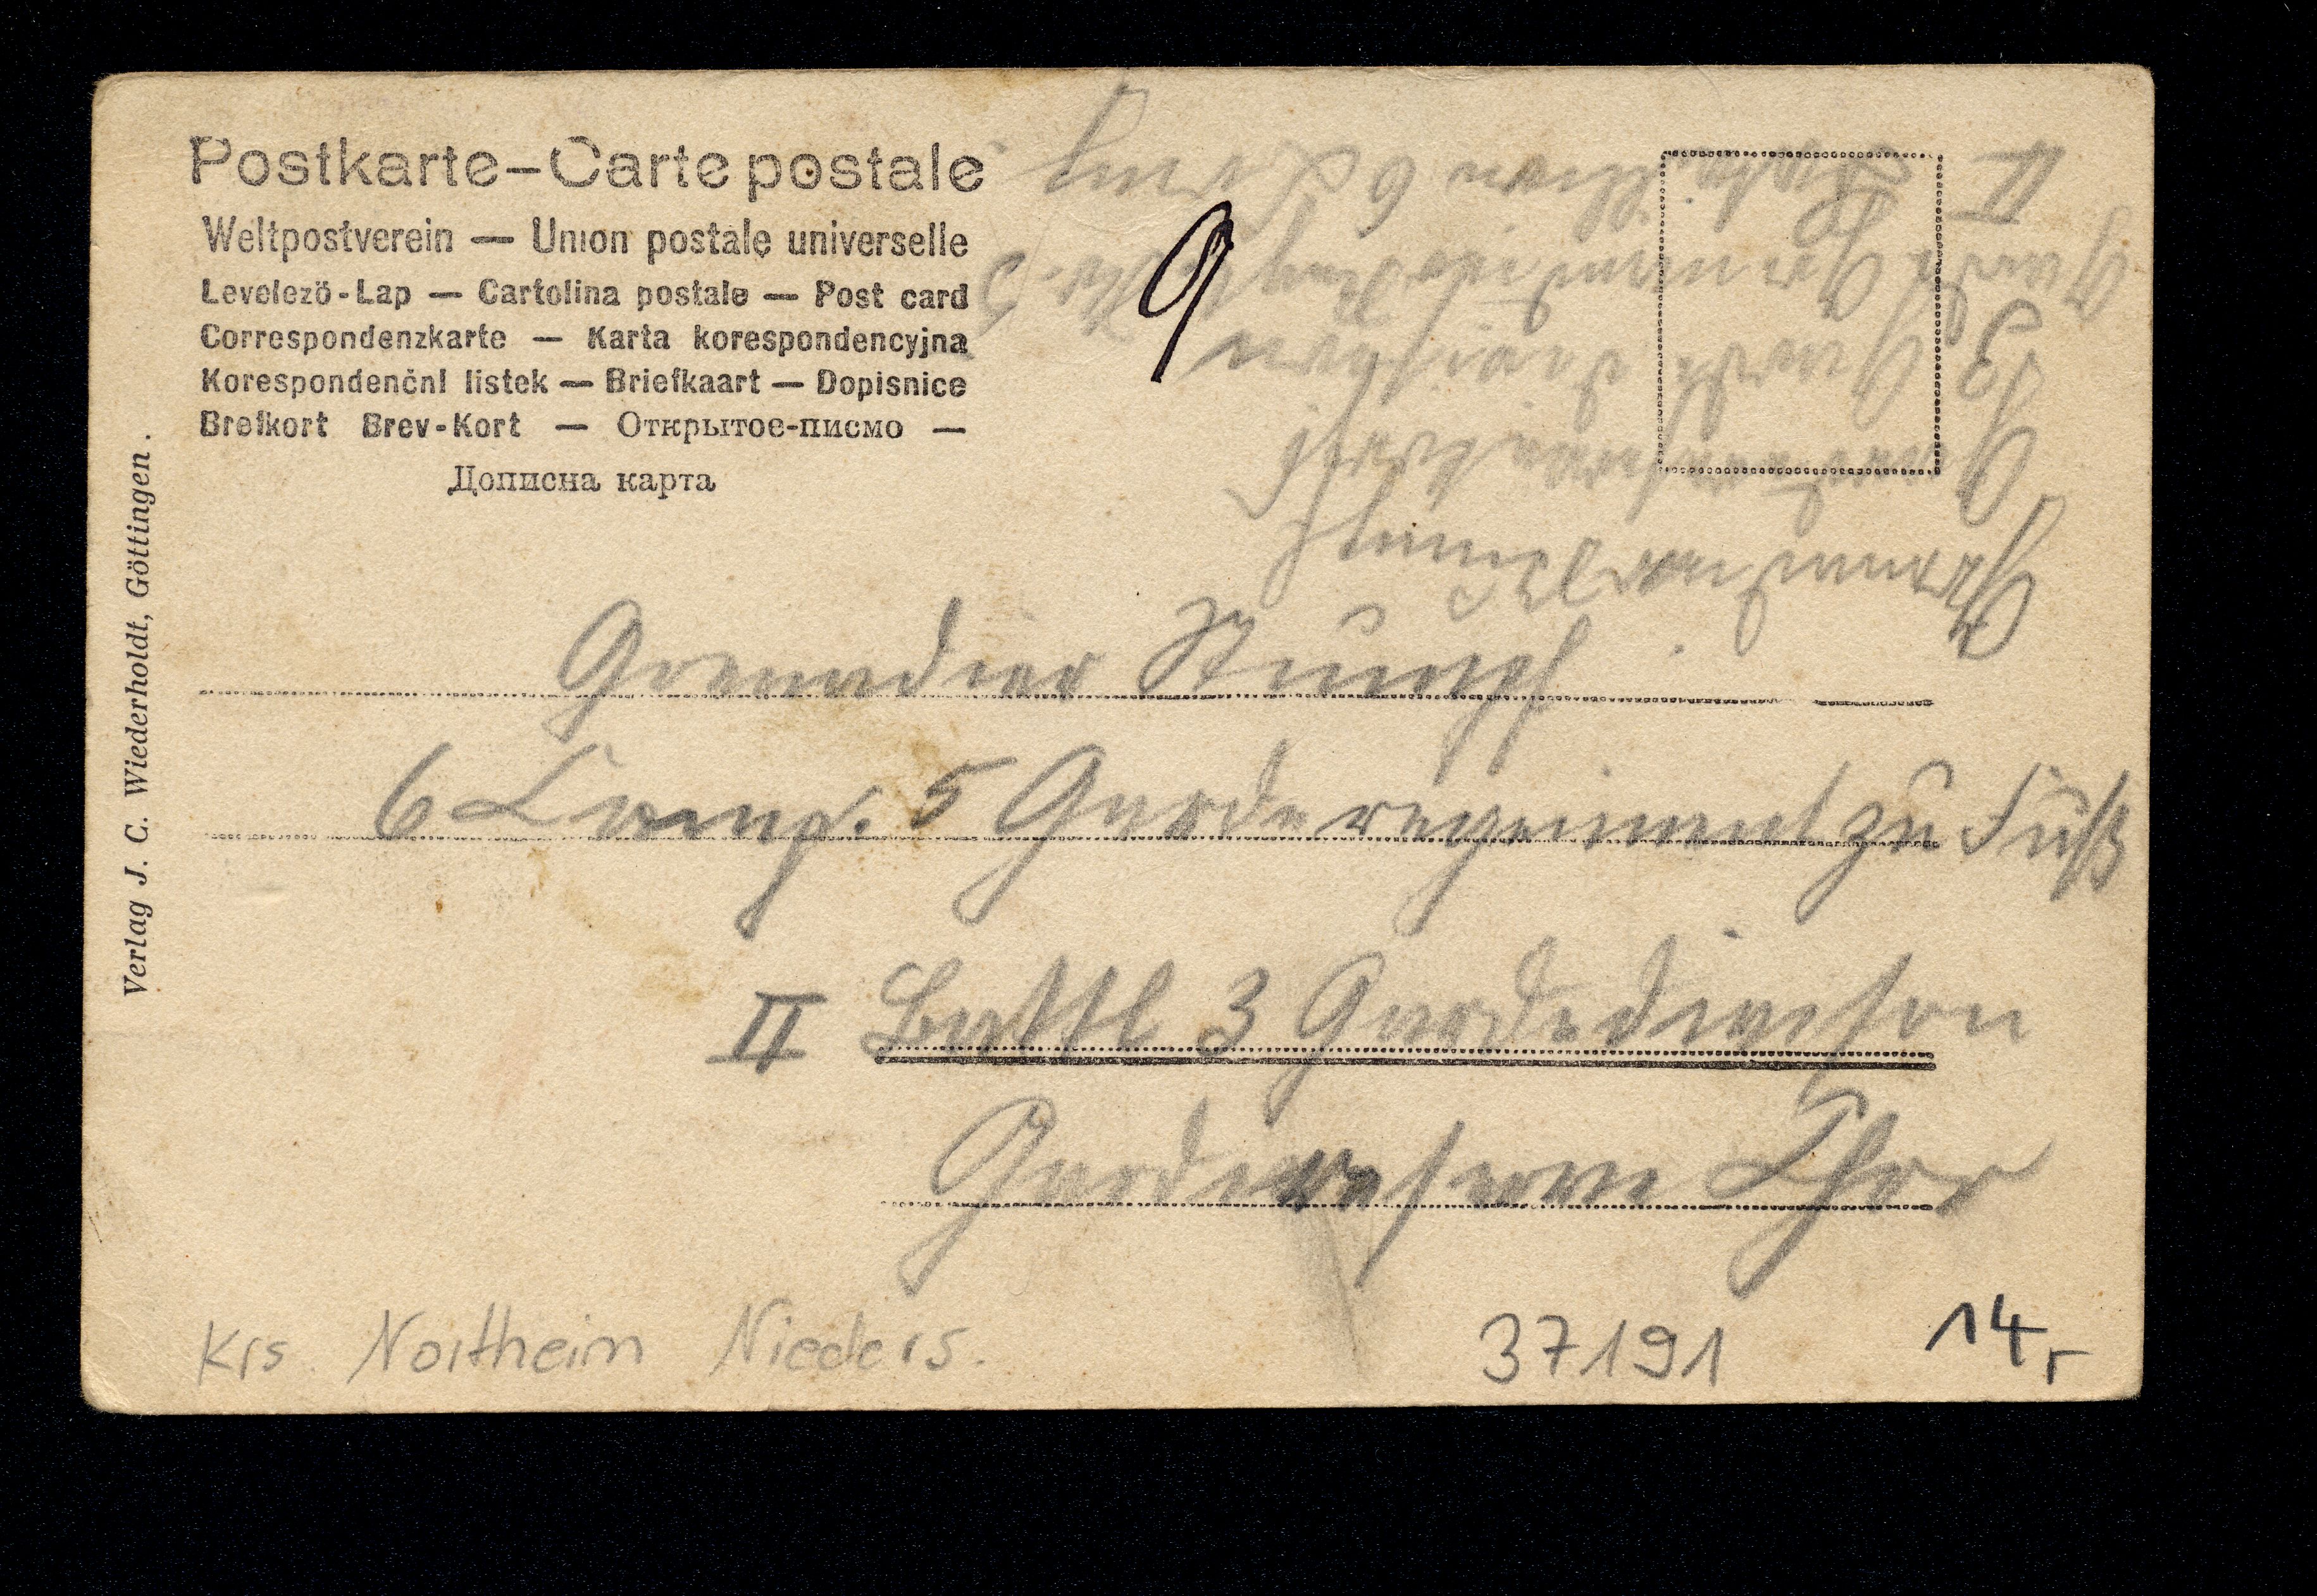 Postkarte – Carte postale
Weltpostverein — Union postale universelle
Levelezö-Lap — Cartolina postale — Post card
Correspondenzkarte — Karta korespondencyjna
Korespondenční listek — Briefkaart — Dopisnice
Brefkort Brev-Kort — Открытое-писмо —
Дописна карта
9
Verlag J. C. Wiederholdt, Göttingen.
Grenadier Stumpf
6 Comp. 5 Garderegiment zu Fuß
II Battl 3 Gardedivision
Gardereserve Chor
Krs. Northeim Nieders.
37191
14r
Grenadier Stumpf
Gardereserve
3 Garde division
Garde
II 6 Comp